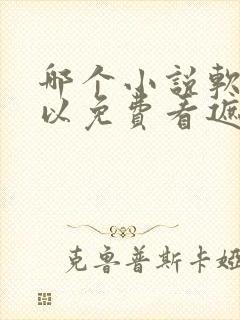 哪个小说軟
以免費看遮
克鲁普斯卡娅